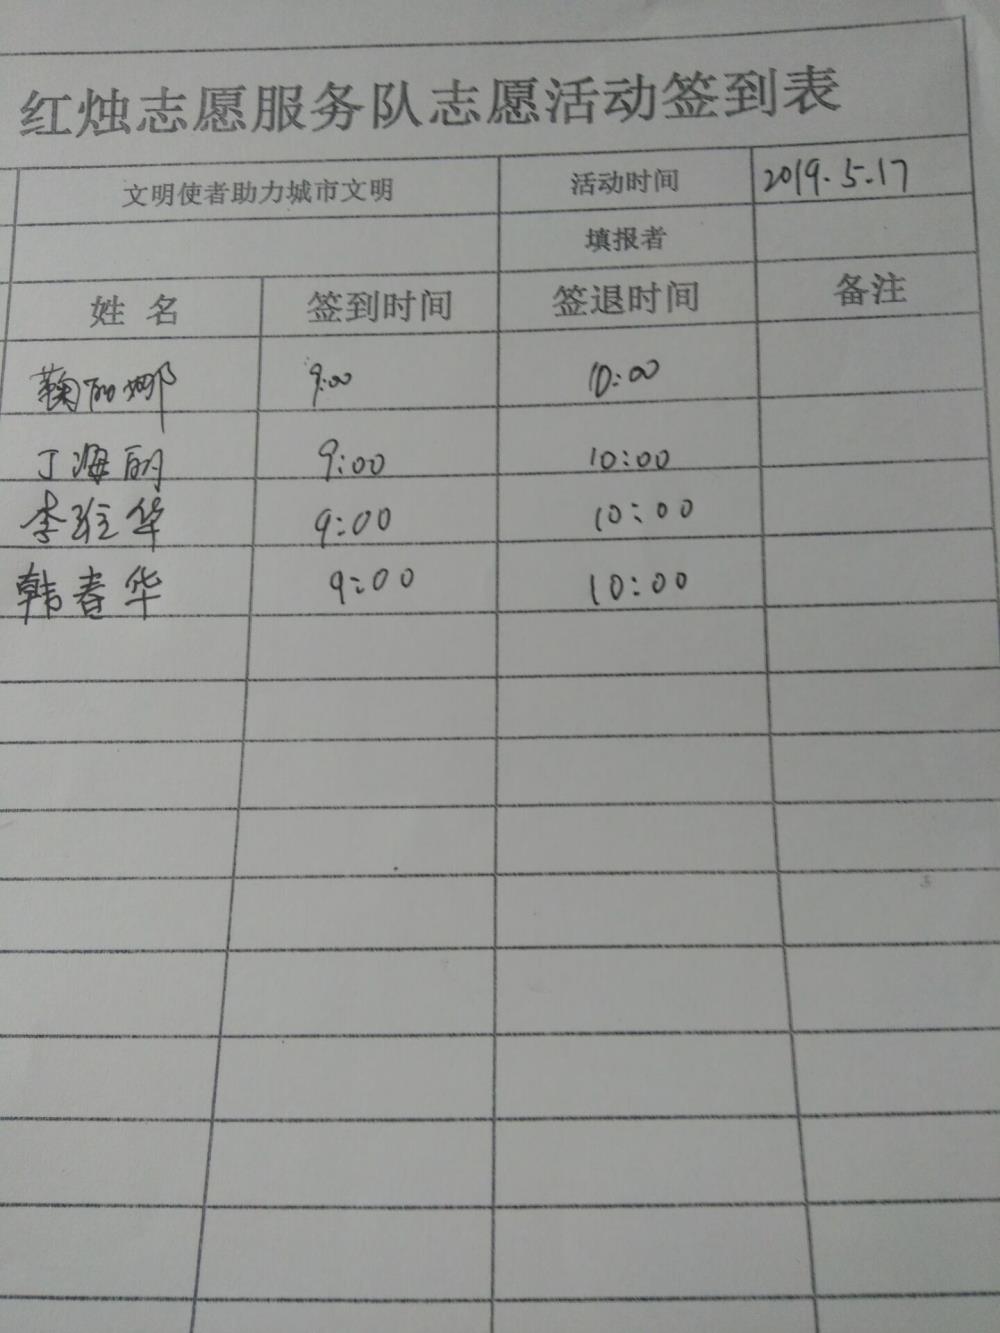 红烛志愿服务队志愿活动签到表
文明使者助力城市文明 活动时间 2019.5.17
填报者
姓名 签到时间 签退时间 备注
鞠丽娜 9:00 10:00
丁海丽 9:00 10:00
李珍华 9:00 10:00
韩春华 9:00 10:00